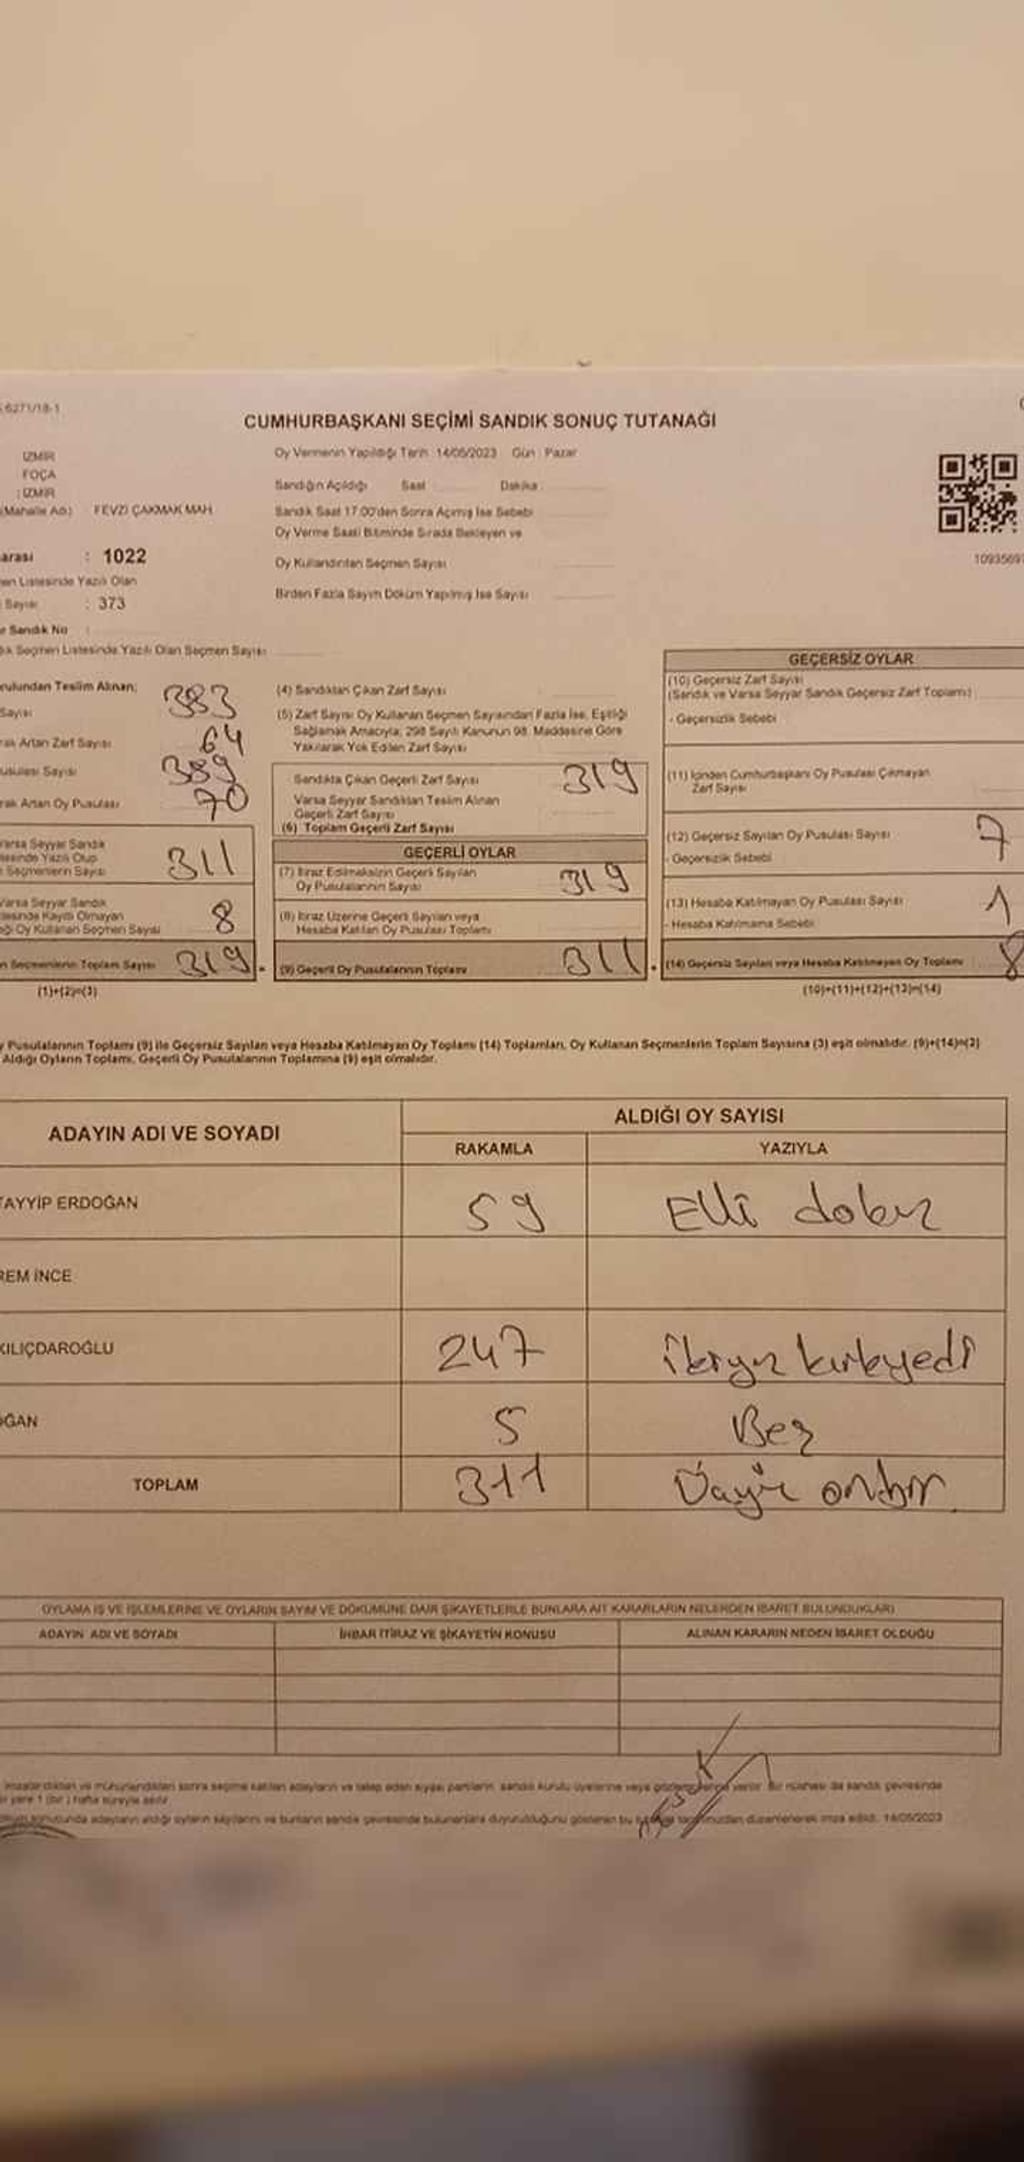 6271/18-1
CUMHURBAŞKANI SEÇİMİ SANDIK SONUÇ TUTANAĞI
İZMİR
FOÇA
: İZMİR
(Mahalle Adı) FEVZİ ÇAKMAK MAH.
arası : 1022
en Listesinde Yazılı Olan
Sayısı : 373
r Sandık No :
ık Seçmen Listesinde Yazılı Olan Seçmen Sayısı
Oy Vermenin Yapıldığı Tarih 14/05/2023 Gün : Pazar
Sandığın Açıldığı Saat Dakika
Sandık Saat 17.00'den Sonra Açılmış İse Sebebi
Oy Verme Saati Bitiminde Sırada Bekleyen ve
Oy Kullandırılan Seçmen Sayısı
Birden Fazla Sayım Döküm Yapılmış İse Sayısı
1093569
rulundan Teslim Alınan;
Sayısı 383
ak Artan Zarf Sayısı 64
usulası Sayısı 389
rak Artan Oy Pusulası 70
Varsa Seyyar Sandık
esinde Yazılı Olup
Seçmenlerin Sayısı 311
Varsa Seyyar Sandık
esinde Kayıtlı Olmayan
ği Oy Kullanan Seçmen Sayısı 8
n Seçmenlerin Toplam Sayısı 319
(1)+(2)=(3)
(4) Sandıktan Çıkan Zarf Sayısı
(5) Zarf Sayısı Oy Kullanan Seçmen Sayısından Fazla İse, Eşitliği
Sağlamak Amacıyla; 298 Sayılı Kanunun 98. Maddesine Göre
Yakılarak Yok Edilen Zarf Sayısı
Sandıkta Çıkan Geçerli Zarf Sayısı 319
Varsa Seyyar Sandıktan Teslim Alınan
Geçerli Zarf Sayısı
(6) Toplam Geçerli Zarf Sayısı
GEÇERLİ OYLAR
(7) İtiraz Edilmeksizin Geçerli Sayılan
Oy Pusulalarının Sayısı 319
(8) İtiraz Üzerine Geçerli Sayılan veya
Hesaba Katılan Oy Pusulası Toplamı
(9) Geçerli Oy Pusulalarının Toplamı 311
GEÇERSİZ OYLAR
(10) Geçersiz Zarf Sayısı
(Sandık ve Varsa Seyyar Sandık Geçersiz Zarf Toplamı)
- Geçersizlik Sebebi
(11) İçinden Cumhurbaşkanı Oy Pusulası Çıkmayan
Zarf Sayısı
(12) Geçersiz Sayılan Oy Pusulası Sayısı 7
- Geçersizlik Sebebi
(13) Hesaba Katılmayan Oy Pusulası Sayısı 1
- Hesaba Katılmama Sebebi
(14) Geçersiz Sayılan veya Hesaba Katılmayan Oy Toplamı 8
(10)+(11)+(12)+(13)=(14)
y Pusulalarının Toplamı (9) ile Geçersiz Sayılan veya Hesaba Katılmayan Oy Toplamı (14) Toplamları, Oy Kullanan Seçmenlerin Toplam Sayısına (3) eşit olmalıdır. (9)+(14)=(3)
Aldığı Oyların Toplamı, Geçerli Oy Pusulalarının Toplamına (9) eşit olmalıdır.
ADAYIN ADI VE SOYADI
ALDIĞI OY SAYISI
RAKAMLA YAZIYLA
TAYYİP ERDOĞAN 59 Elli dokuz
REM İNCE
KILIÇDAROĞLU 247 ikiyüz kırkyedi
OĞAN 5 Beş
TOPLAM 311 Üçyüz onbir
OYLAMA İŞ VE İŞLEMLERİNE VE OYLARIN SAYIM VE DÖKÜMÜNE DAİR ŞİKAYETLERLE BUNLARA AİT KARARLARIN NELERDEN İBARET BULUNDUKLARI
ADAYIN ADI VE SOYADI İHBAR İTİRAZ VE ŞİKAYETİN KONUSU ALINAN KARARIN NEDEN İBARET OLDUĞU
imzalandıktan ve mühürlendikten sonra seçime katılan adayların ve talep eden siyasi partilerin sandık kurulu üyelerine veya verilir. Bir nüshası da sandık çevresinde
yere 1 (bir) hafta süreyle asılır.
sonucunda adayların aldığı oyların sayılarını ve bunların sandık çevresinde bulunanlara duyurulduğunu gösteren bu düzenlenerek imza edildi. 14/05/2023